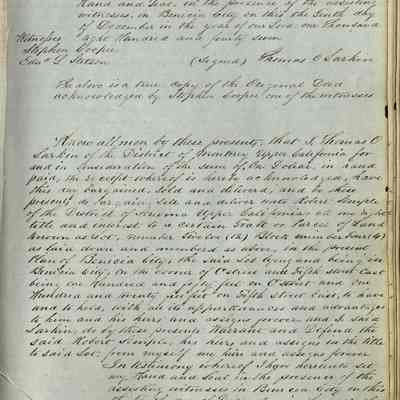 Hand and Seal in the presence of the assisting
witnesses in Benicia City on this the tenth day
of December in the year of our Lord one Thousand
Witnesses Eight Hundred and forty seven
Stephen Cooper
(Signed) Thomas O Larkin
The above is a true copy of the Original Deed
acknowledged by Stephen Cooper one of the witnesses
Know all men by these presents, that I Thomas O
Larkin of the District of Monterey Upper California for
and in consideration of the sum of One Dollar, in hand
paid, the receipt whereof is hereby acknowledged, have
this day bargained, sold and delivered, and by these
presents do bargain, sell and deliver unto Robert Semple
of the District of Sonoma Upper California all my right
title and interest to a certain Tract or Parcel of Land
known as Lot, number Twelve (12) Block number
as laid down and numbered as above, in the present
Plan of Benicia City, the said Lot lying and being in
Benicia City, on the corner of C street and Fifth street East
being One Hundred and fifty feet on C street and One
Hundred and twenty feet on Fifth street East, to have
and to hold, with all its appurtenances and advantages
to him and his heirs and assigns forever and I said
Larkin, do by these presents Warrant and Defend the
said Robert Semple, his heirs and assigns in the title
to said Lot from myself my heirs and assigns forever
In testimony whereof I have hereunto set
my Hand and Seal in the presence of the
assisting witnesses in Benicia City on this